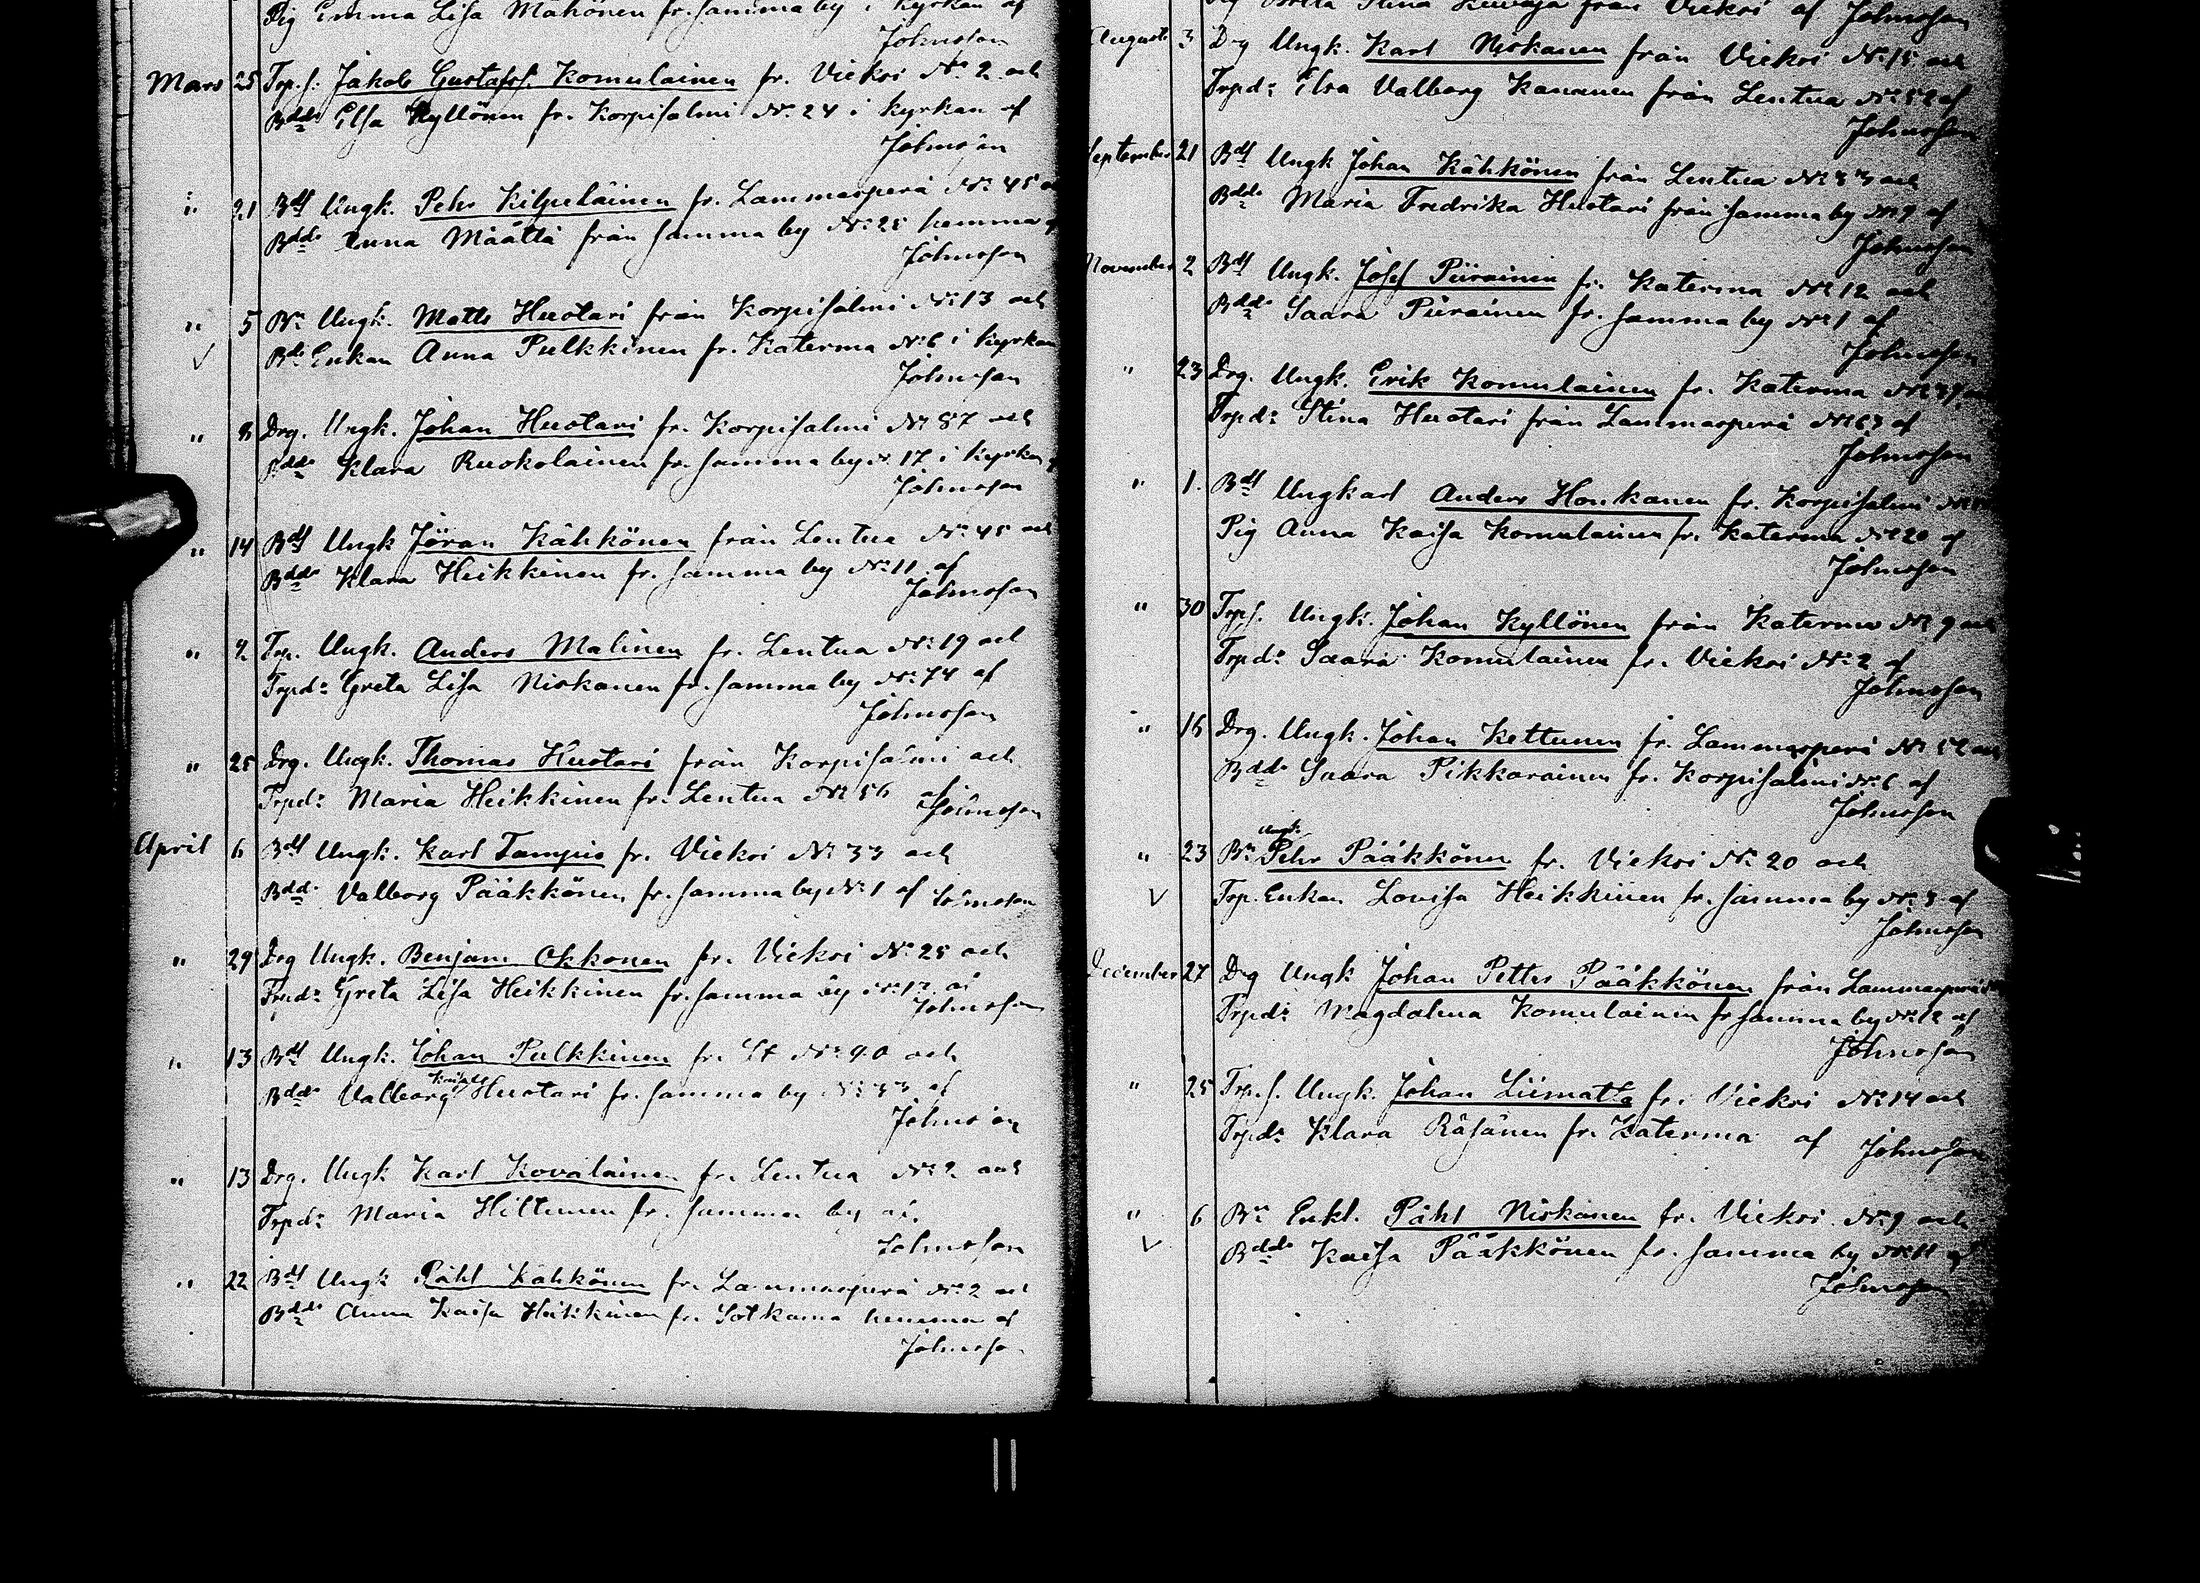 Pig Emma Lisa Mähönen fr. samma by i kyrkan af
Johnsson
Mars 25 Trp.s. Jakob Gustafss. Komulainen fr. Vieksi No 2 och
Bdd. Elsa Kyllönen fr. Korpisalmi No. 24 i kyrkan af
Johnsson
" 21 Bdf Ungk. Pehr Kilpeläinen fr. Lammasperä No 45
Bdd. Anna Määttä från samma by No 25 hemma
Johnsson
" 5 Bn Ungk. Matts Huotari från Korpisalmi No 13 och
Bd. Enkan Anna Pulkkinen fr. Katerma No 6 i kyrkan
Johnsson
" 8 Drg. Ungk. Johan Huotari fr. Korpisalmi No 87 och
Bdd. Klara Ruokolainen fr. samma by N. 17 i kyrkan
Johnsson
" 14 Bdf Ungk Jöran Kähkönen från Lentua No 45 och
Bdd. Klara Heikkinen fr. samma by No 11 af
Johnsson
" 2 Trp. Ungk. Anders Malinen fr. Lentua No 19 och
Trpd: Greta Lisa Niskanen fr. samma by No 74 af
Johnsson
" 25 Drg. Ungk. Thomas Huotari från Korpisalmi och
Trpd: Maria Heikkinen fr. Lentua No 56 af
Johnsson
April 6 Bdf Ungk. Karl Tampio fr. Vieksi No 33 och
Bdd. Valborg Pääkkönen fr. samma by No 1 af Johnsson
" 29 Drg Ungk. Benjam Okkonen fr. Vieksi No 25 och
Trpd: Greta Lisa Heikkinen fr. samma by No 12 af
Johnsson
" 13 Bdf Ungk. Johan Pulkkinen fr. No 40 och
Bdd. Valborg Huotari fr. samma by No 33 af
Johnsson
" 13 Drg. Ungk Karl Kovalainen fr. Lentua No 2 och
Trpd: Maria Hiltunen fr. samma by af
Johnsson
" 22 Bdf Ungk Påhl Kähkönen fr. Lammasperä No 2 och
Bdd. Anna Kaisa Heikkinen fr. Sotkamo hemma af
Johnsson
Stina fr̊ån Vieksi af Johnsson
Augusti 3 Drg Ungk. Karl Niskanen från Vieksi No 15 och
Trpd: Elsa Valborg Kananen från Lentua No 52 af
Johnsson
September 21 Bdf Ungk Johan Kähkönen från Lentua No 33 och
Bdd. Maria Fredrika Huotari från samma by No 9 af
Johnsson
November 2 Bdf Ungk. Josef Piirainen fr. Katerma No 12 och
Bdd. Saara Piirainen fr. samma by No 1 af
Johnsson
" 23 Drg. Ungk. Erik Komulainen fr. Katerma No 39
Trpd: Stina Huotari från Lammasperä No 63 af
Johnsson
" 1. Bdf Ungkarl Anders Honkanen fr. Korpisalmi
Pig Anna Kaisa Komulainen fr. Katerma No 20 af
Johnsson
" 30 Trps. Ungk. Johan Kyllönen från Katerma No 9 och
Trpd: Saara Komulainen fr. Vieksi No 2 af
Johnsson
" 16 Drg. Ungk. Johan Kettunen fr. Lammasperä No 52
Bdd. Saara Pikkarainen fr. Korpisalmi No 6 af
Johnsson
Ungk.
" 23 Bn Pehr Pääkkönen fr. Vieksi No 20 och
Trp. Enkan Lovisa Heikkinen fr. samma by No 3 af
Johnsson
December 27 Drg Ungk Johan Petter Pääkkönen från Lammasperä
Trpd: Magdalena Komulainen fr samma by No 12 af
Johnsson
" 25 Trp.s. Ungk. Johan Liimatta fr. Vieksi No 14 och
Trpd: Klara Räsänen fr. Katerma af Johnsson
" 6 Bn Enkl. Påhl Niskanen fr. Vieksi No 9 och
Bdd. Kaisa Pääkkönen fr. samma by No 11 af
Johnsson